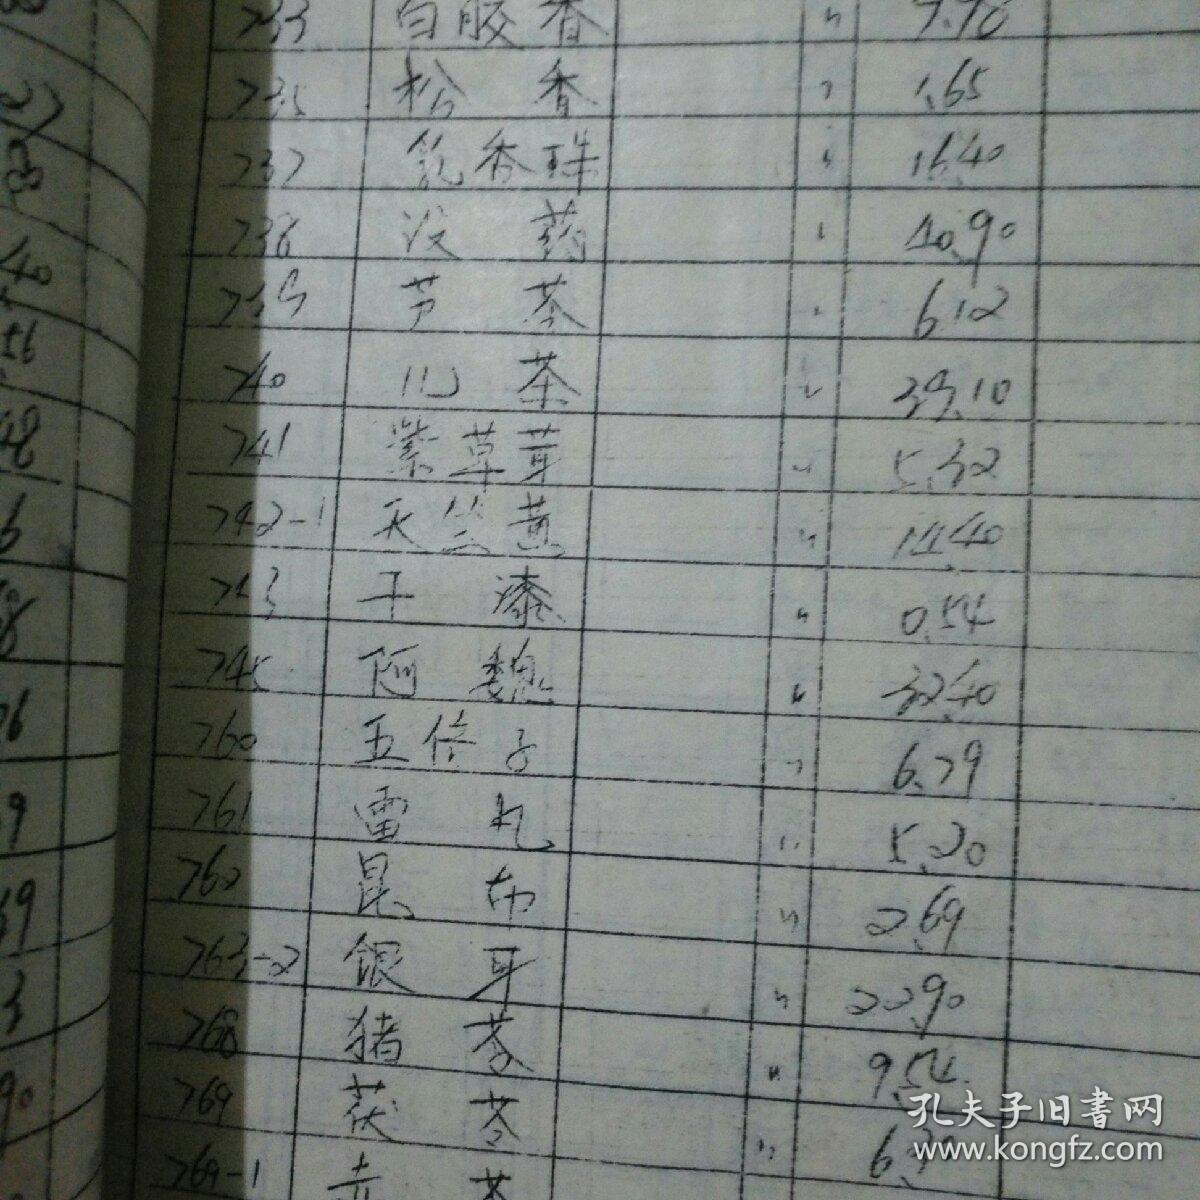 733 白胶香 〃 7.78
735 松香 〃 1.65
737 乳香珠 〃 16.40
738 没药 〃 40.90
739 芦荟 〃 6.12
740 儿茶 〃 39.10
741 紫草茸 〃 5.32
742-1 天竺黄 〃 14.40
743 干漆 〃 0.54
745 阿魏 〃 32.40
760 五倍子 〃 6.79
761 雷丸 〃 5.20
762 昆布 〃 2.69
763-2 银耳 〃 22.90
768 猪苓 〃 9.54
769 茯苓 〃
769-1 赤苓
孔夫子旧書网
www.kongfz.com